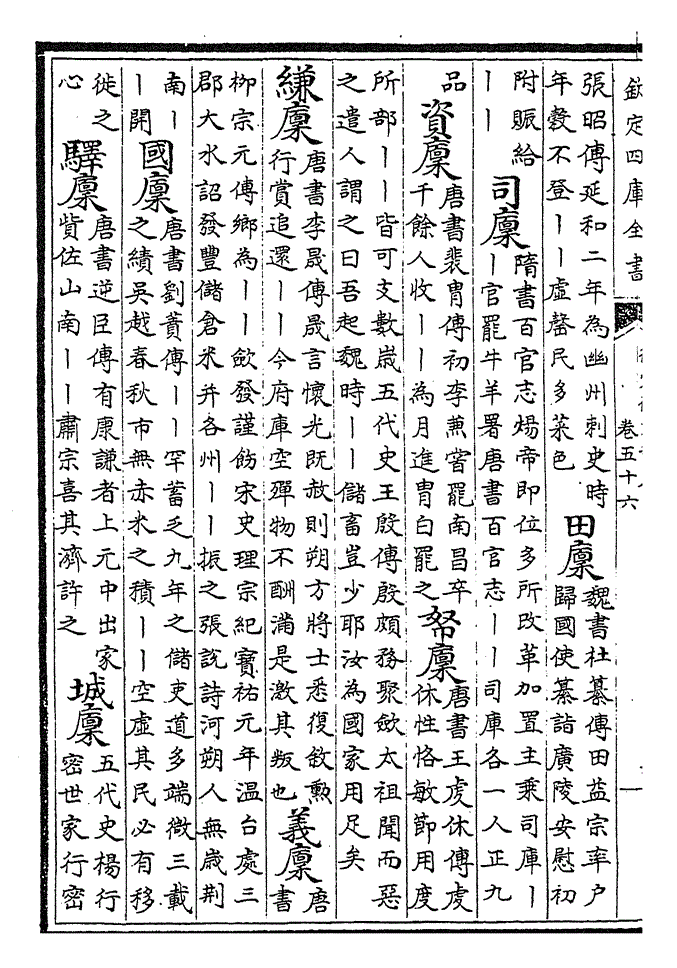 欽定四庫全書
卷五十六
張昭傳延和二年為幽州刺史時
年穀不登丨丨虛罄民多菜色
田廩
魏書杜纂傳田益宗率戶
歸國使纂詣廣陵安慰初
附賑給
丨丨
司廩
隋書百官志煬帝即位多所改革加置主乘司庫丨
丨官罷牛羊署唐書百官志丨丨司庫各一人正九
品
資廩
唐書裴胄傳初李蒹嘗罷南昌卒
千餘人收丨丨為月進胄白罷之
帑廩
唐書王虔休傳虔
休性恪敏節用度
所部丨丨皆可支數歳五代史王殷傳殷頗務聚斂太祖聞而惡
之遣人謂之曰吾起魏時丨丨儲畜豈少耶汝為國家用足矣
縑廩
唐書李晟傳晟言懷光既赦則朔方將士悉復敘勲
行賞追還丨丨今府庫空殫物不酬滿是激其叛也
義廩
唐
書
柳宗元傳鄉為丨丨斂發謹飭宋史理宗紀寶祐元年温台處三
郡大水詔發豐儲倉米并各州丨丨振之張說詩河朔人無歳荆
南丨
丨開
國廩
唐書劉蕡傳丨丨罕蓄乏九年之儲吏道多端微三載
之績吳越春秋市無赤米之積丨丨空虛其民必有移
徙之
心
驛廩
唐書逆臣傳有康謙者上元中出家
貲佐山南丨丨肅宗喜其濟許之
城廩
五代史楊行
密世家行密